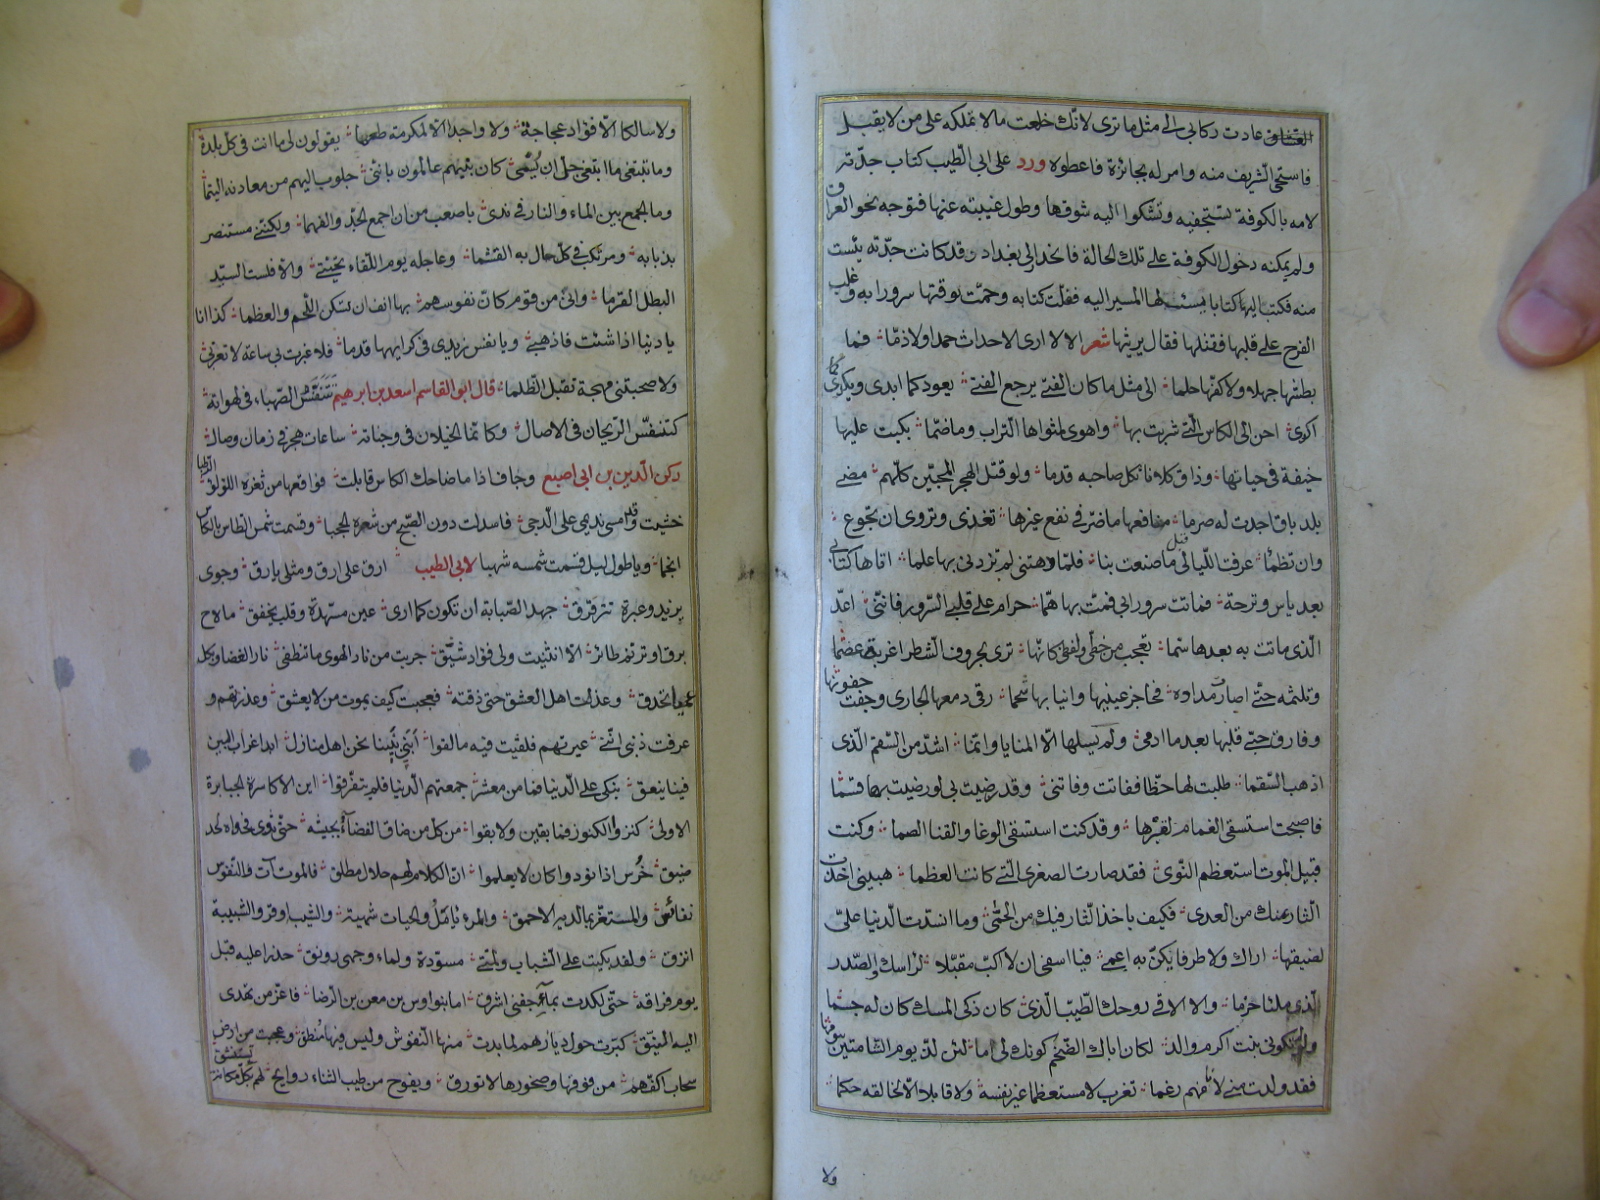 العشاق عادت ركابى الى مثل ما ترى لانك خلعت مالا تملكه على من لا يقبل
فاستحى الشريف منه وامر له بجائزة فاعطوه ورد على ابى الطيب كتاب جدته
لامه بالكوفة تستجفيه وتشكوا اليه شوقها وطول غيبته عنها فتوجه نحو العراق
ولم يمكنه دخول الكوفة على تلك الحالة فانحدر الى بغداد وقد كانت جدته يئست
منه فكتب اليها كتابا يسئلها المسير اليه فقبلت كتابه وحمت لوقتها سرورا به وغلب
الفرح على قلبها فقتلها فقال يرثيها شعر الا لا ارى الاحداث حمدا ولا ذما فما
بطشها جهلا ولا كفها حلما الى مثل ما كان الفتى يرجع الفتى يعود كما ابدى ويكرى كما
اكرى احن الى الكاس التى شربت بها واهوى لمثواها التراب وماضما بكيت عليها
خيفة فى حياتها وذاق كلانا ثكل صاحبه قدما ولو قتل الهجر المحبين كلهم مضى
بلد باق اجدت له صرما منافعها ماضر فى نفع غيرها تغذى وتروى ان تجوع
وان تظما عرفت الليالى قبل ما صنعت بنا فلما دهتنى لم تزدنى بها علما اتاها كتابى
بعد ياس وترحة فماتت سرورا بى فمت بها هما حرام على قلبى السرور فاننى اعد
الذى ماتت به بعدها سما تعجب من خطى ولفظى كانها ترى بحروف السطر اغربة عصما
وتلثمه حتى اصار مداده محاجر عينيها وانيابها سحما رقى دمعها الجارى وجفت جفونها
وفارق حبى قلبها بعد ما ادمى ولم يسلها الا المنايا وانما اشد من السقم الذى
اذهب السقما طلبت لها حظا ففاتت وفاتنى وقد رضيت بى لو رضيت بها قسما
فاصبحت استسقى الغمام لقبرها وقد كنت استسقى الوغا والقنا الصما وكنت
قبيل الموت استعظم النوى فقد صارت الصغرى التى كانت العظما هبينى اخذت
الثار منك من العدى فكيف باخذ الثار فيك من الحمى وما انسدت الدنيا على
لضيقها اراك ولا طرفا يكن به اعمى فيا اسفى ان لا اكب مقبلا لراسك والصدر
الذى ملئا حزما والا الاقى روحك الطيب الذى كان ذكى المسك كان له جسما
ولو لم تكونى بنت اكرم والد لكان اباك الضخم كونك لى اما لئن لذ يوم الشامتين بيومها
فقد ولدت منى لانافهم رغما تغرب لا مستعظما غير نفسه ولا قابلا الا لخالقه حكما
ولا
ولا سالكا الا فؤاد عجاجة ولا واجدا الا لمكرمة طعما يقولون لى ما انت فى كل بلدة
وما تبتغى ما ابتغى جل ان يسمى كان بنيهم عالمون باننى جلوب اليهم من معادنه اليتما
وما الجمع بين الماء والنار فى يدى باصعب من ان اجمع الجد والفهما ولكننى مستنصر
بذبابه ومرتكب فى كل حال به الغشما وعاجله يوم اللقاء تحيتى والا فلست السيد
البطل القرما وانى من قوم كان نفوسهم بها انف ان تسكن اللحم والعظما كذا انا
يا دنيا اذا شئت فاذهبى ويا نفس زيدى فى كرايهها قدما فلا عبرت بى ساعة لا تعزنى
ولا صحبتنى مهجة تقبل الظلما قال ابو القاسم اسعد بن ابرهيم تتنفس الصهباء فى لهواته
كتنفس الريحان فى الاصال وكانما الخيلان فى وجناته ساعات هجر فى زمان وصال
ركن الدين بن ابى اصبع
خشيت وقد امسى نديمى على الدجى فاسدلت دون الصبح من شعره الحجبا وقسمت شمس الطاس بالكاس
انجما وياطول ليل قسمت شمسه شهبا لابى الطيب ارق على ارق ومثلى يارق وجوى
يزيد وعبرة تترقرق جهد الصبابة ان تكون كما ارى عين مسهدة وقلب يخفق ما لاح
برق او ترنم طائر الا انثنيت ولى فؤاد شيق جربت من نار الهوى ما تنطفى نار الغضا وتكل
عما تحرق وعذلت اهل العشق حتى ذقته فعجبت كيف يموت من لا يعشق وعذرتهم و
عرفت ذنبى اننى عيرتهم فلقيت فيه ما لقوا ابنى ابينا نحن اهل منازل ابدا غراب البين
فينا ينعق نبكى على الدنيا فما من معشر جمعتهم الدنيا فلم يتفرقوا اين الاكاسرة الجبابرة
الاولى كنزوا الكنوز فما بقين ولا بقوا من كل من ضاق الفضاء بجيشه حتى ثوى فحواه لحد
ضيق خرس اذا نودوا كان لا يعلموا ان الكلام لهم حلال مطلق فالموت ات والنفوس
نفائس والمستغر بما لديه الاحمق والمرء يامل والحيات شهية والشيب اوقر والشبيبة
انزق ولقد بكيت على الشباب ولمتى مسودة ولماء وجهى رونق حذرا عليه قبل
يوم فراقه حتى لكدت بماء جفنى اشرق اما بنو اوس بن معن بن الرضا فاعز من تحدى
اليه المينق كبرت حول ديارهم لما بدت منها الشموس وليس فيها مشرق وعجبت من ارض
سحاب اكفهم من فوقها وصخورها لا تورق ويفوح من طيب الثناء روايح لهم بكل مكانة تستنشق